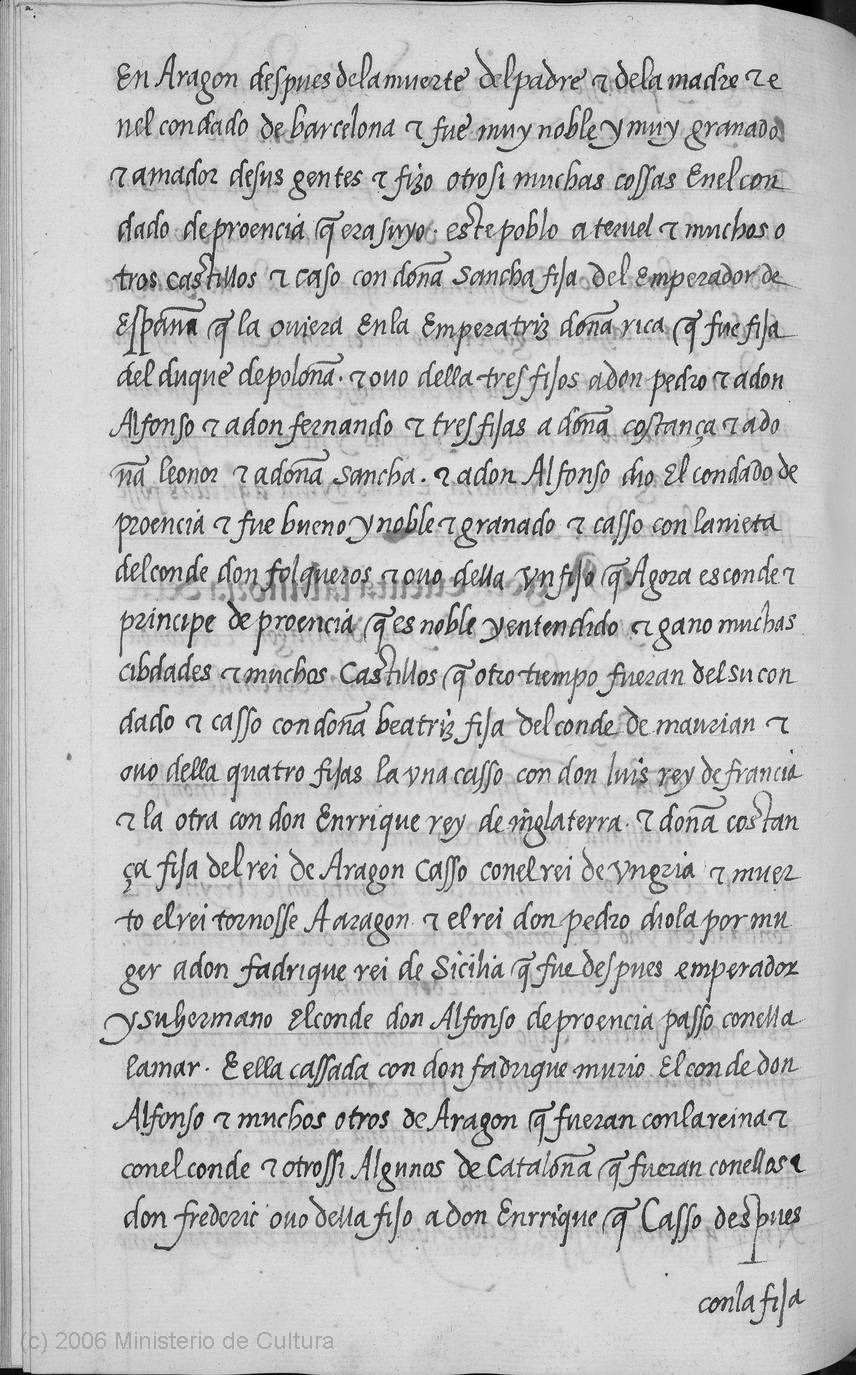 En Aragon despues dela muerte del padre τ dela madre τ e
nel condado de barcelona τ fue muy noble y muy granado
τ amador desus gentes τ fizo otrosi muchas cossas Enel con
dado de proencia q̃ era suyo. este poblo a teruel τ muchos o
tros castillos τ caso con doña sancha fija del Emperador de
España q̃ la oviera Enla Emperatriz doña rica q̃ fue fija
del duque de poloña. τ ovo della tres fijos adon pedro τ adon
Alfonso τ adon fernando τ tres fijas a doña costança τ ado
ña leonor τ adoña sancha. τ adon Alfonso dio El condado de
proencia τ fue bueno y noble τ granado τ casso con la nieta
del conde don folqueros τ ovo della vn fijo q̃ Agora es conde τ
principe de proencia q̃ es noble y entendido τ gano muchas
cibdades τ muchos Castillos q̃ otro tiempo fueran del su con
dado τ casso con doña beatriz fija del conde de maurian τ
ovo della quatro fijas la vna casso con don luis rey de francia
τ la otra con don Enrrique rey de inglaterra. τ doña costan
ça fija del rei de Aragon Casso conel rei de vngria τ muer
to el rei tornosse A aragon τ el rei don pedro diola por mu
ger adon fadrique rei de Sicilia q̃ fue despues emperador
y su hermano El conde don Alfonso de proencia passo conella
la mar. E ella cassada con don fadrique murio El conde don
Alfonso τ muchos otros de Aragon q̃ fueran conla reina τ
conel conde τ otrossi Algunos de Cataloña q̃ fueran conellos τ
don frederic ovo della fijo adon Enrrique q̃ Casso despues
conla fija
(c) 2006 Ministerio de Cultura